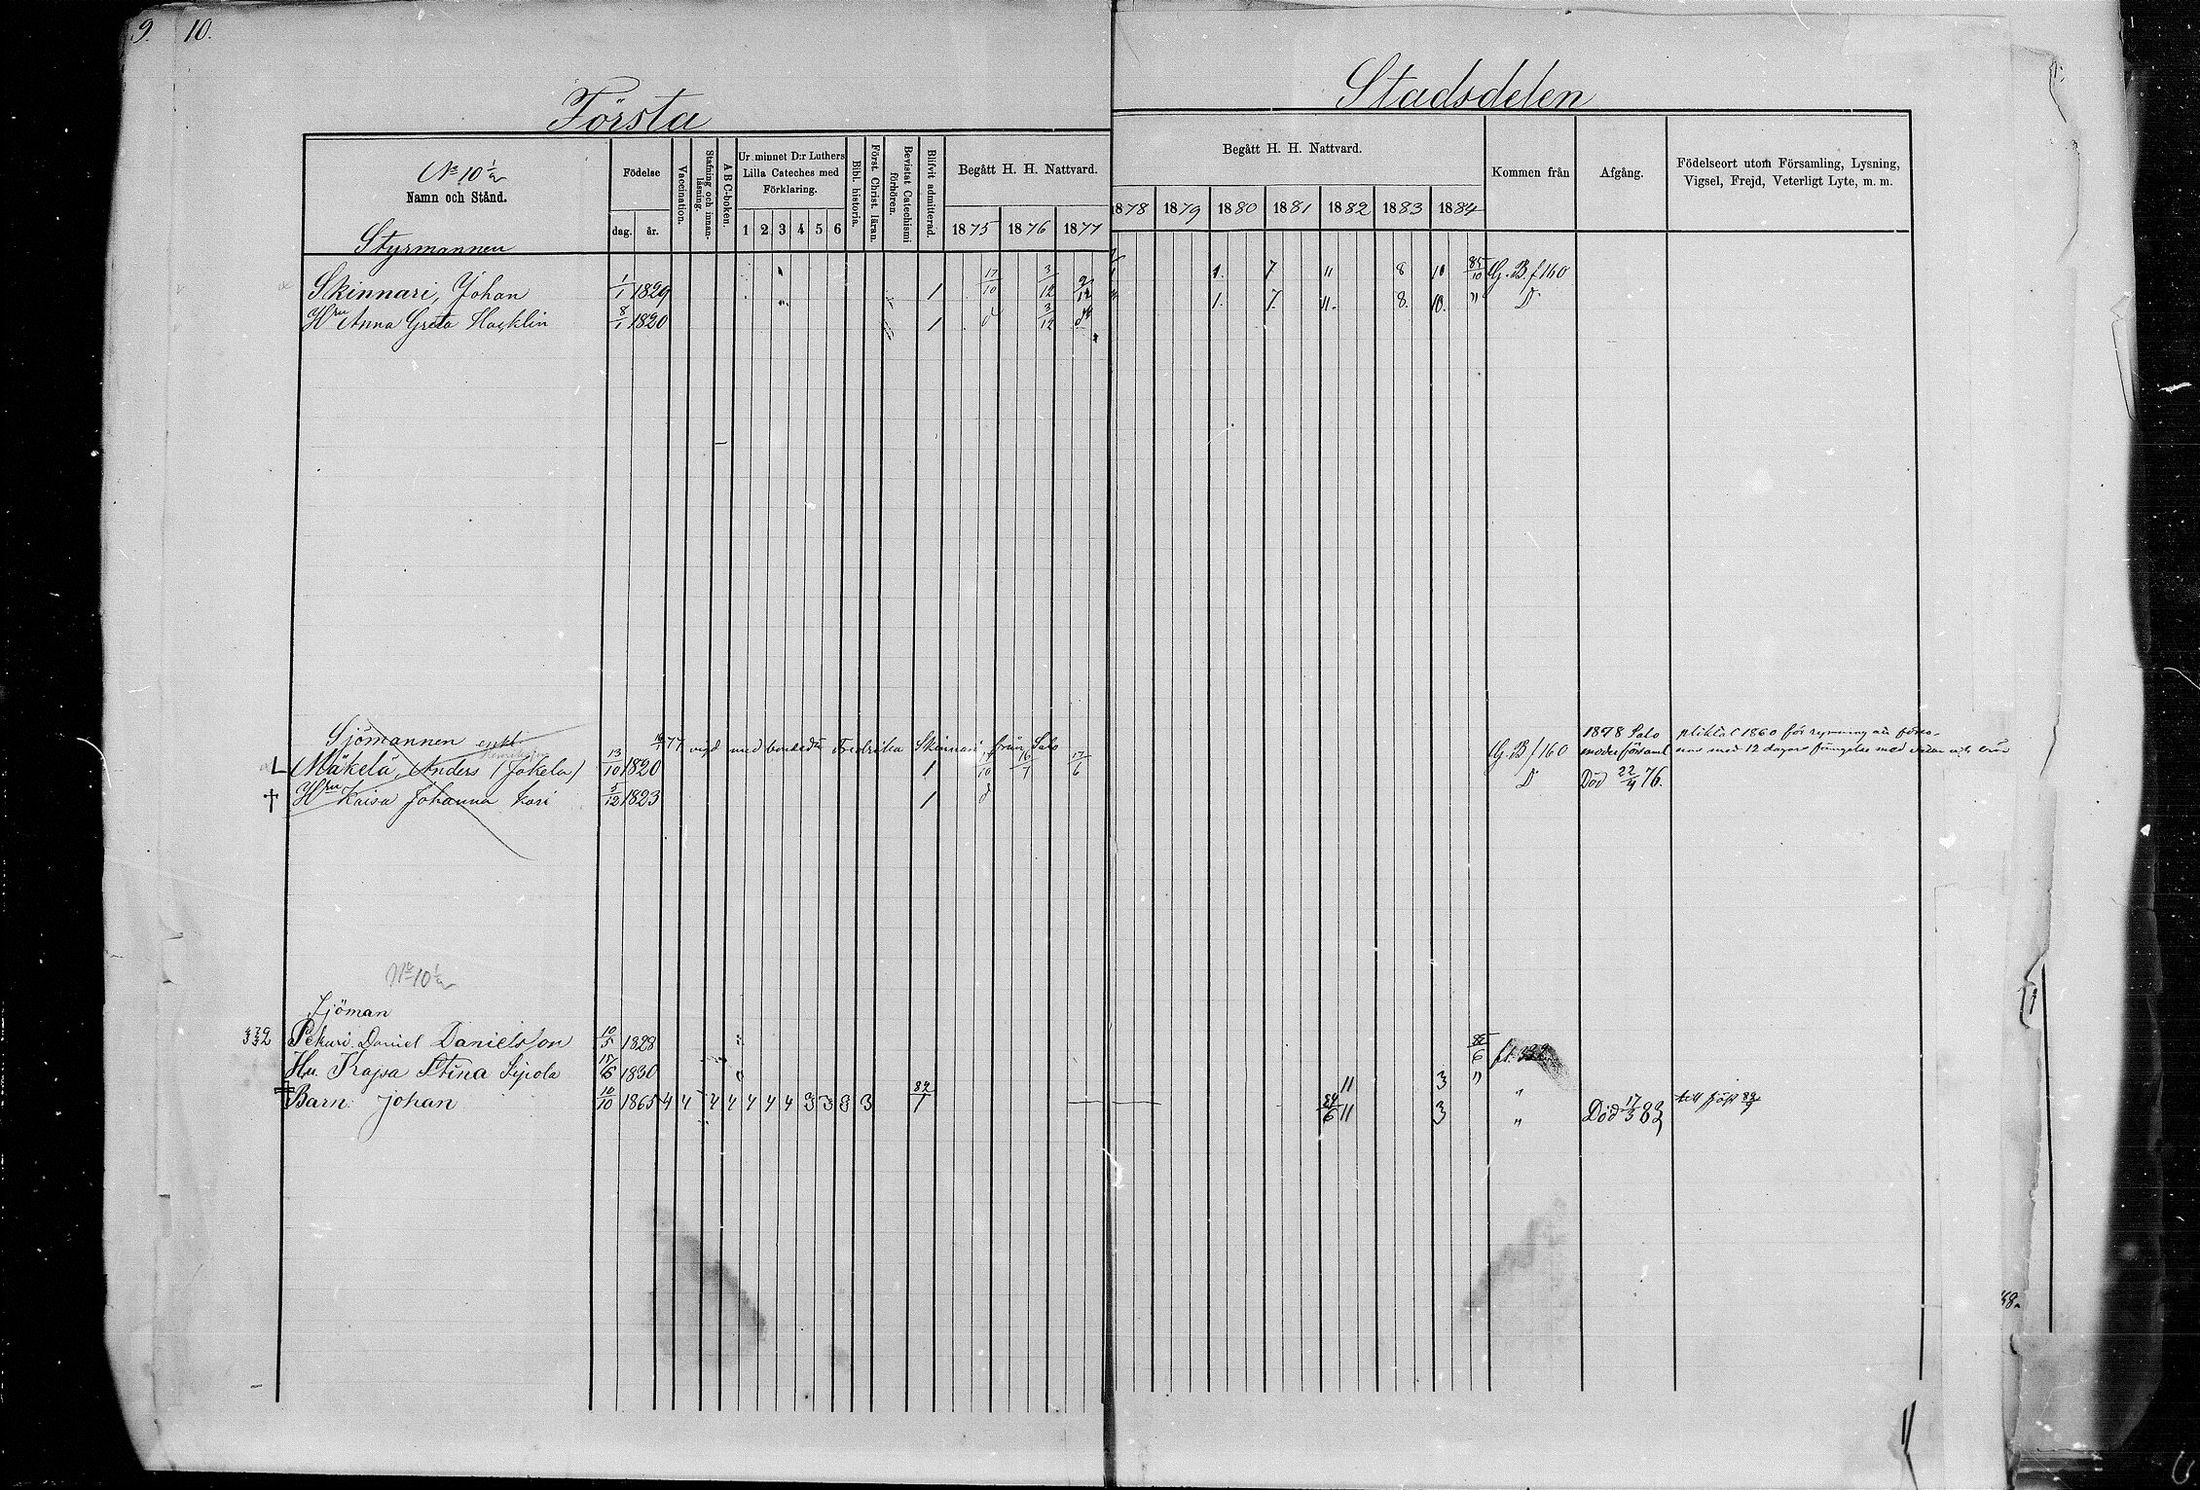 9. 10.
Första Stadsdelen
No 10 1/2
Namn och Stånd.
Födelse
dag. år.
Vaccination.
Stafning och innan-läsning.
A B C-boken.
Ur minnet D:r Luthers
Lilla Cateches med
Förklaring.
1 2 3 4 5 6
Bibl. historia.
Först. Christ. läran.
Bevistat Catechismi förhören.
Blifvit admitterad.
Begått H. H. Nattvard.
1875 1876 1877
Begått H. H. Nattvard.
1878 1879 1880 1881 1882 1883 1884
Kommen från
Afgång.
Födelseort utom Församling, Lysning,
Vigsel, Frejd, Veterligt Lyte, m. m.
Styrmannen
Skinnari, Johan 1/1 1829 1 17/10 3/12 9/12 1. 7 11 8 10 85/10 G. B f 160
Hru Anna Greta 8/1 1820 1 d 3/12 1. 7. 11. 8. 10. " D
Sjömannen enkl. 77 vigd med Fredrika Skinnari från Salo 1878 Salo pliktat 1860 för
Mäkelä, Anders (Jokela) 13/10 1820 1 17/6 G. B f 160 moderförsaml med 12 dagars fängelse med vatten och bröd
† Hru Kaisa Johanna Kari 5/12 1823 1 d D Död 22/4 76.
No 10 1/2
Sjöman
332 Pekuri Daniel Danielsson 10/5 1828 85/6 f.
Hu. Kajsa Stina Sipola 1830 11 3 " "
† Barn: Johan 10/10 1865 4 4 4 4 4 4 4 3 3 3 3 82/1 11 3 " Död 17/3 83